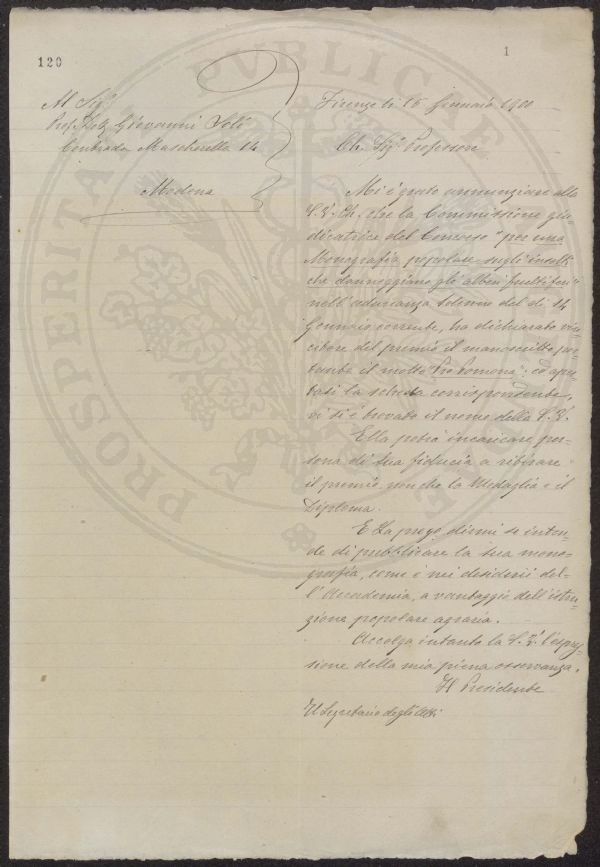 120
1
Al Sigr
Prof. Dott. Giovanni
Contrada Mascherella 14
Modena
Firenze li 16 Gennaio 1900
Ch. Sigr Professore
Mi è grato annunziare alla
S. V. Ch. che la Commissione giu
dicatrice del Concorso "per una
Monografia popolare sugli insetti
che danneggiano gli alberi fruttiferi"
nell' adunanza solenne del dì 14
Gennaio corrente, ha dichiarato vin
citore del premio il manoscritto por
tante il motto "Pro Pomona"; ed aper
tasi la scheda corrispondente,
vi si è trovato il nome della S. V.
Ella potrà incaricare per-
sona di sua fiducia a ritirare
il premio, non che la Medaglia e il
Diploma.
E La prego dirmi se inten-
de di pubblicare la sua mono-
grafia, come è nei desiderii del-
l' Accademia, a vantaggio dell' istru-
zione popolare agraria.
Accolga intanto la S. V. l' espres-
sione della mia piena osservanza.
Il Presidente
Il Segretario degli Atti
PROSPERITATI PUBLICAE